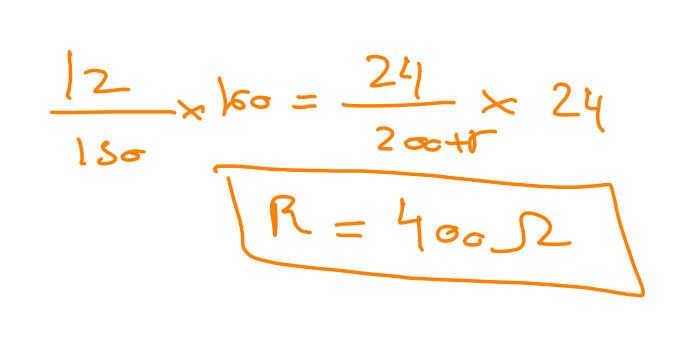 12/150 × 100 = 24/200+r × 24
R = 400 Ω